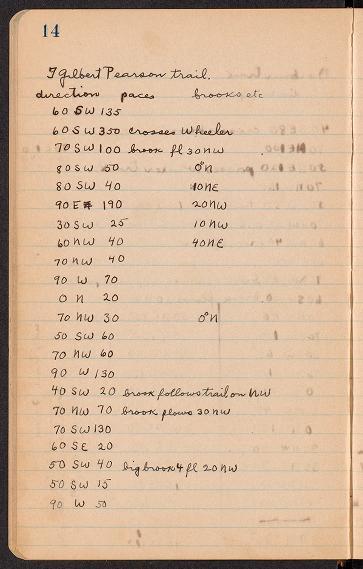 14
T Gilbert Pearson trail.
direction paces brooks etc
60 SW 135
60 SW 350 crosses Wheeler
70 SW 100 brook fl 30 NW
80 SW 50 0°N
80 SW 40 10NE
90 E 190 20NW
30 SW 25 10NW
60 NW 40 40NE
70 NW 40
90 W 70
0 N 20
70 NW 30 0°N
50 SW 60
70 NW 60
90 W 130
40 SW 20 brook follows trail on NW
70 NW 70 brook flows 30 NW
70 SW 130
60 SE 20
50 SW 40 big brook 4 fl 20 NW
50 SW 15
90 W 50